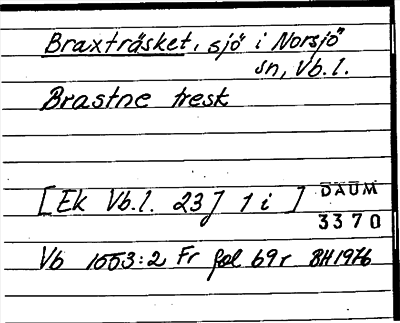 Braxträsket, sjö i Norsjö
sn, Vb.l.
Brastne tresk
[Ek Vb.l. 23J 1 i ] DAUM
3370
Vb 1553:2 Fr fol 69r BH1976